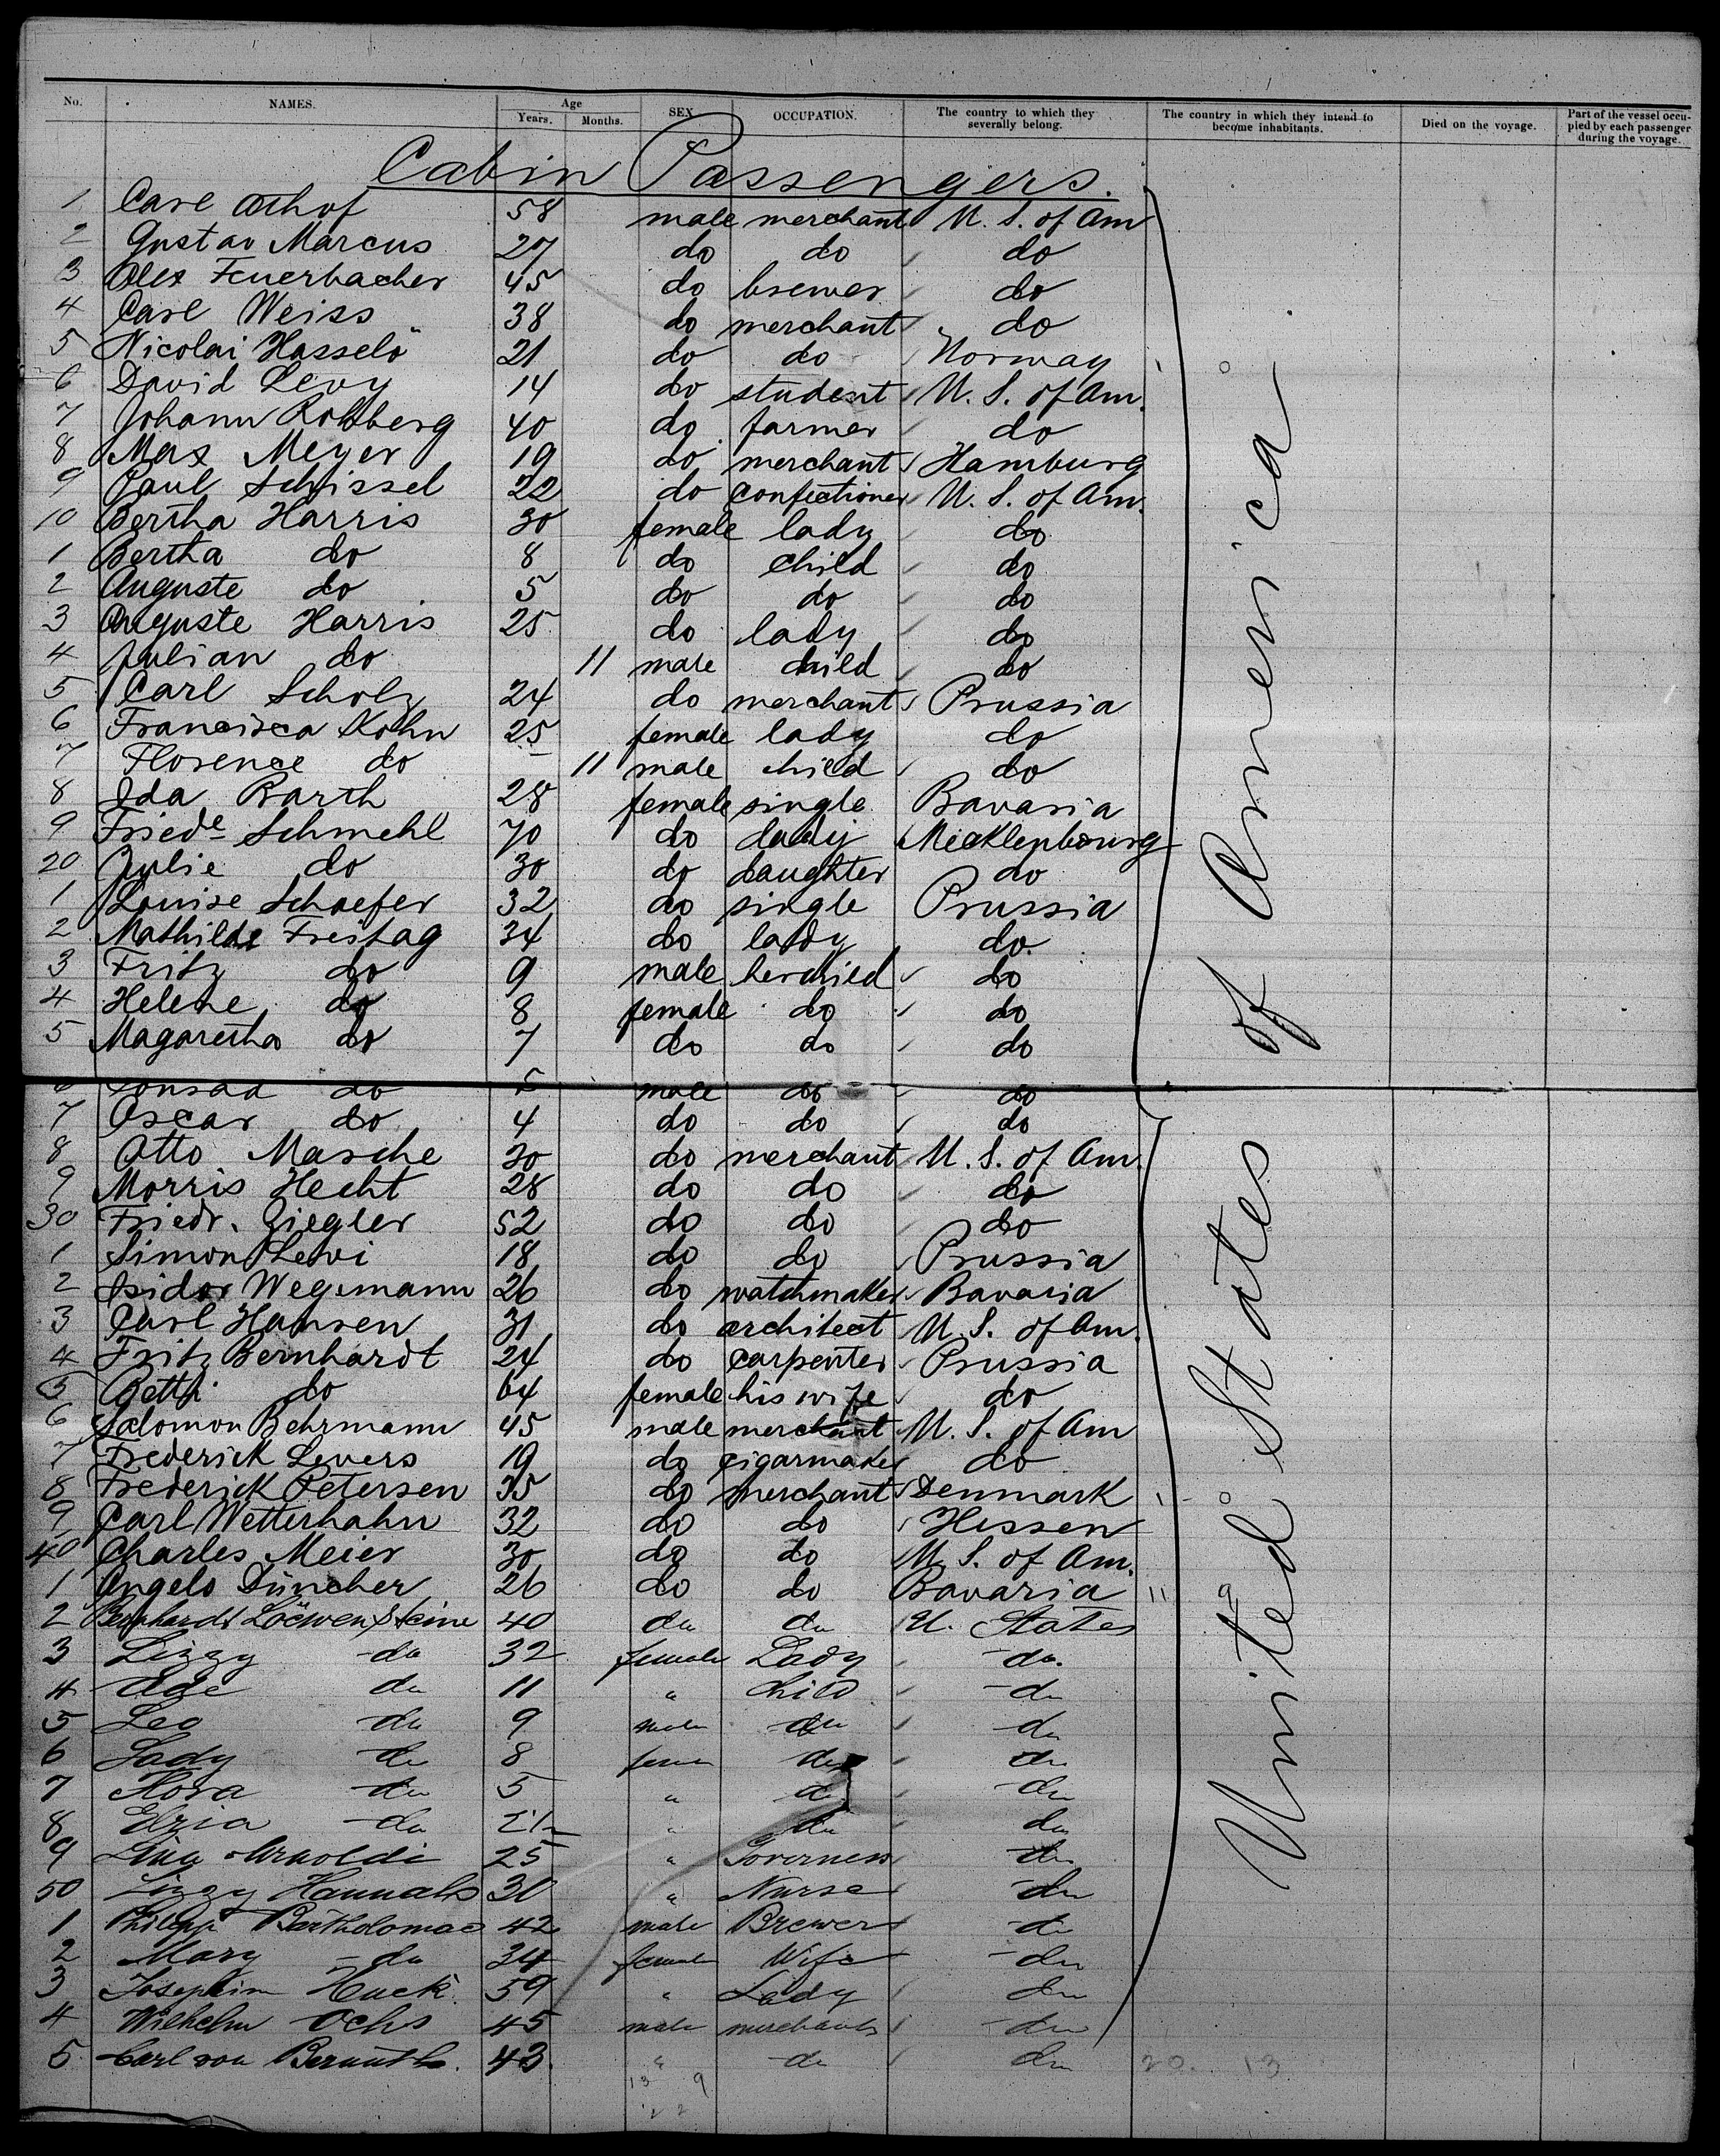 No. NAMES. Age Years. Months. SEX OCCUPATION. The country to which they severally belong. The country in which they intend to become inhabitants. Died on the voyage. Part of the vessel occupied by each passenger during the voyage.
Cabin Passengers.
1 Carl Othof 58 male merchant U. S. of Am
2 Gustav Marcus 27 do do do
3 Alex Feuerbacher 45 do brewer do
4 Carl Weiss 38 do merchant do
5 Nicolai Hasselö 21 do do Norway
6 David Levy 14 do student U. S. of Am.
7 Johann Rohlberg 40 do farmer do
8 Max Meyer 19 do merchant Hamburg
9 Paul Schissel 22 do confectioner U. S. of Am.
10 Bertha Harris 30 female lady do
1 Bertha do 8 do child do
2 Auguste do 5 do do do
3 Auguste Harris 25 do lady do
4 Julian do 11 male child do
5 Carl Scholz 24 do merchant Prussia
6 Francisca Kohn 25 female lady do
7 Florence do 11 male child do
8 Ida Barth 28 female single Bavaria
9 Friede Schmehl 70 do lady Mecklenbourg
20 Julie do 30 do daughter do
1 Louise Schaefer 32 do single Prussia
2 Mathilde Freitag 34 do lady do.
3 Fritz do 9 male her child do
4 Helene do 8 female do do
5 Magaretha do 7 do do do
6 Conrad do 5 male do do
7 Oscar do 4 do do do
8 Otto Masche 30 do merchant U. S. of Am.
9 Morris Hecht 28 do do do
30 Friedr. Ziegler 52 do do do
1 Simon Lewi 18 do do Prussia
2 Isidor Wegemann 26 do watchmaker Bavaria
3 Carl Hansen 31 do architect U. S. of Am.
4 Fritz Bernhardt 24 do carpenter Prussia
5 Betti do 64 female his wife do
6 Salomon Behrmann 45 male merchant U. S. of Am
7 Frederick Levers 19 do cigarmaker do
8 Frederick Petersen 35 do merchant Denmark
9 Carl Wetterhahn 32 do do Hessen
40 Charles Meier 30 do do U. S. of Am.
1 Angelo Düncher 26 do do Bavaria
2 Bernhardt Loewenstein 40 do do U. States
3 Lizzy do 32 female Lady do.
4 do 11 " child do
5 Leo do 9 male do do
6 Lady do 8 female do do
7 Flora do 5 " do do
8 Elzia do " do do
9 Lina Arnoldi 25 " Governess do
50 Lizzy Hannah 30 " Nurse do
1 Philipp Bartholomae 42 male Brewer do
2 Mary do 34 female Wife do
3 Josephin Huck 59 " Lady do
4 Wilhelm Ochs 45 male merchant do
5 Carl von Bernuth 43 " do do 20. 13
13 9
22
United States of America